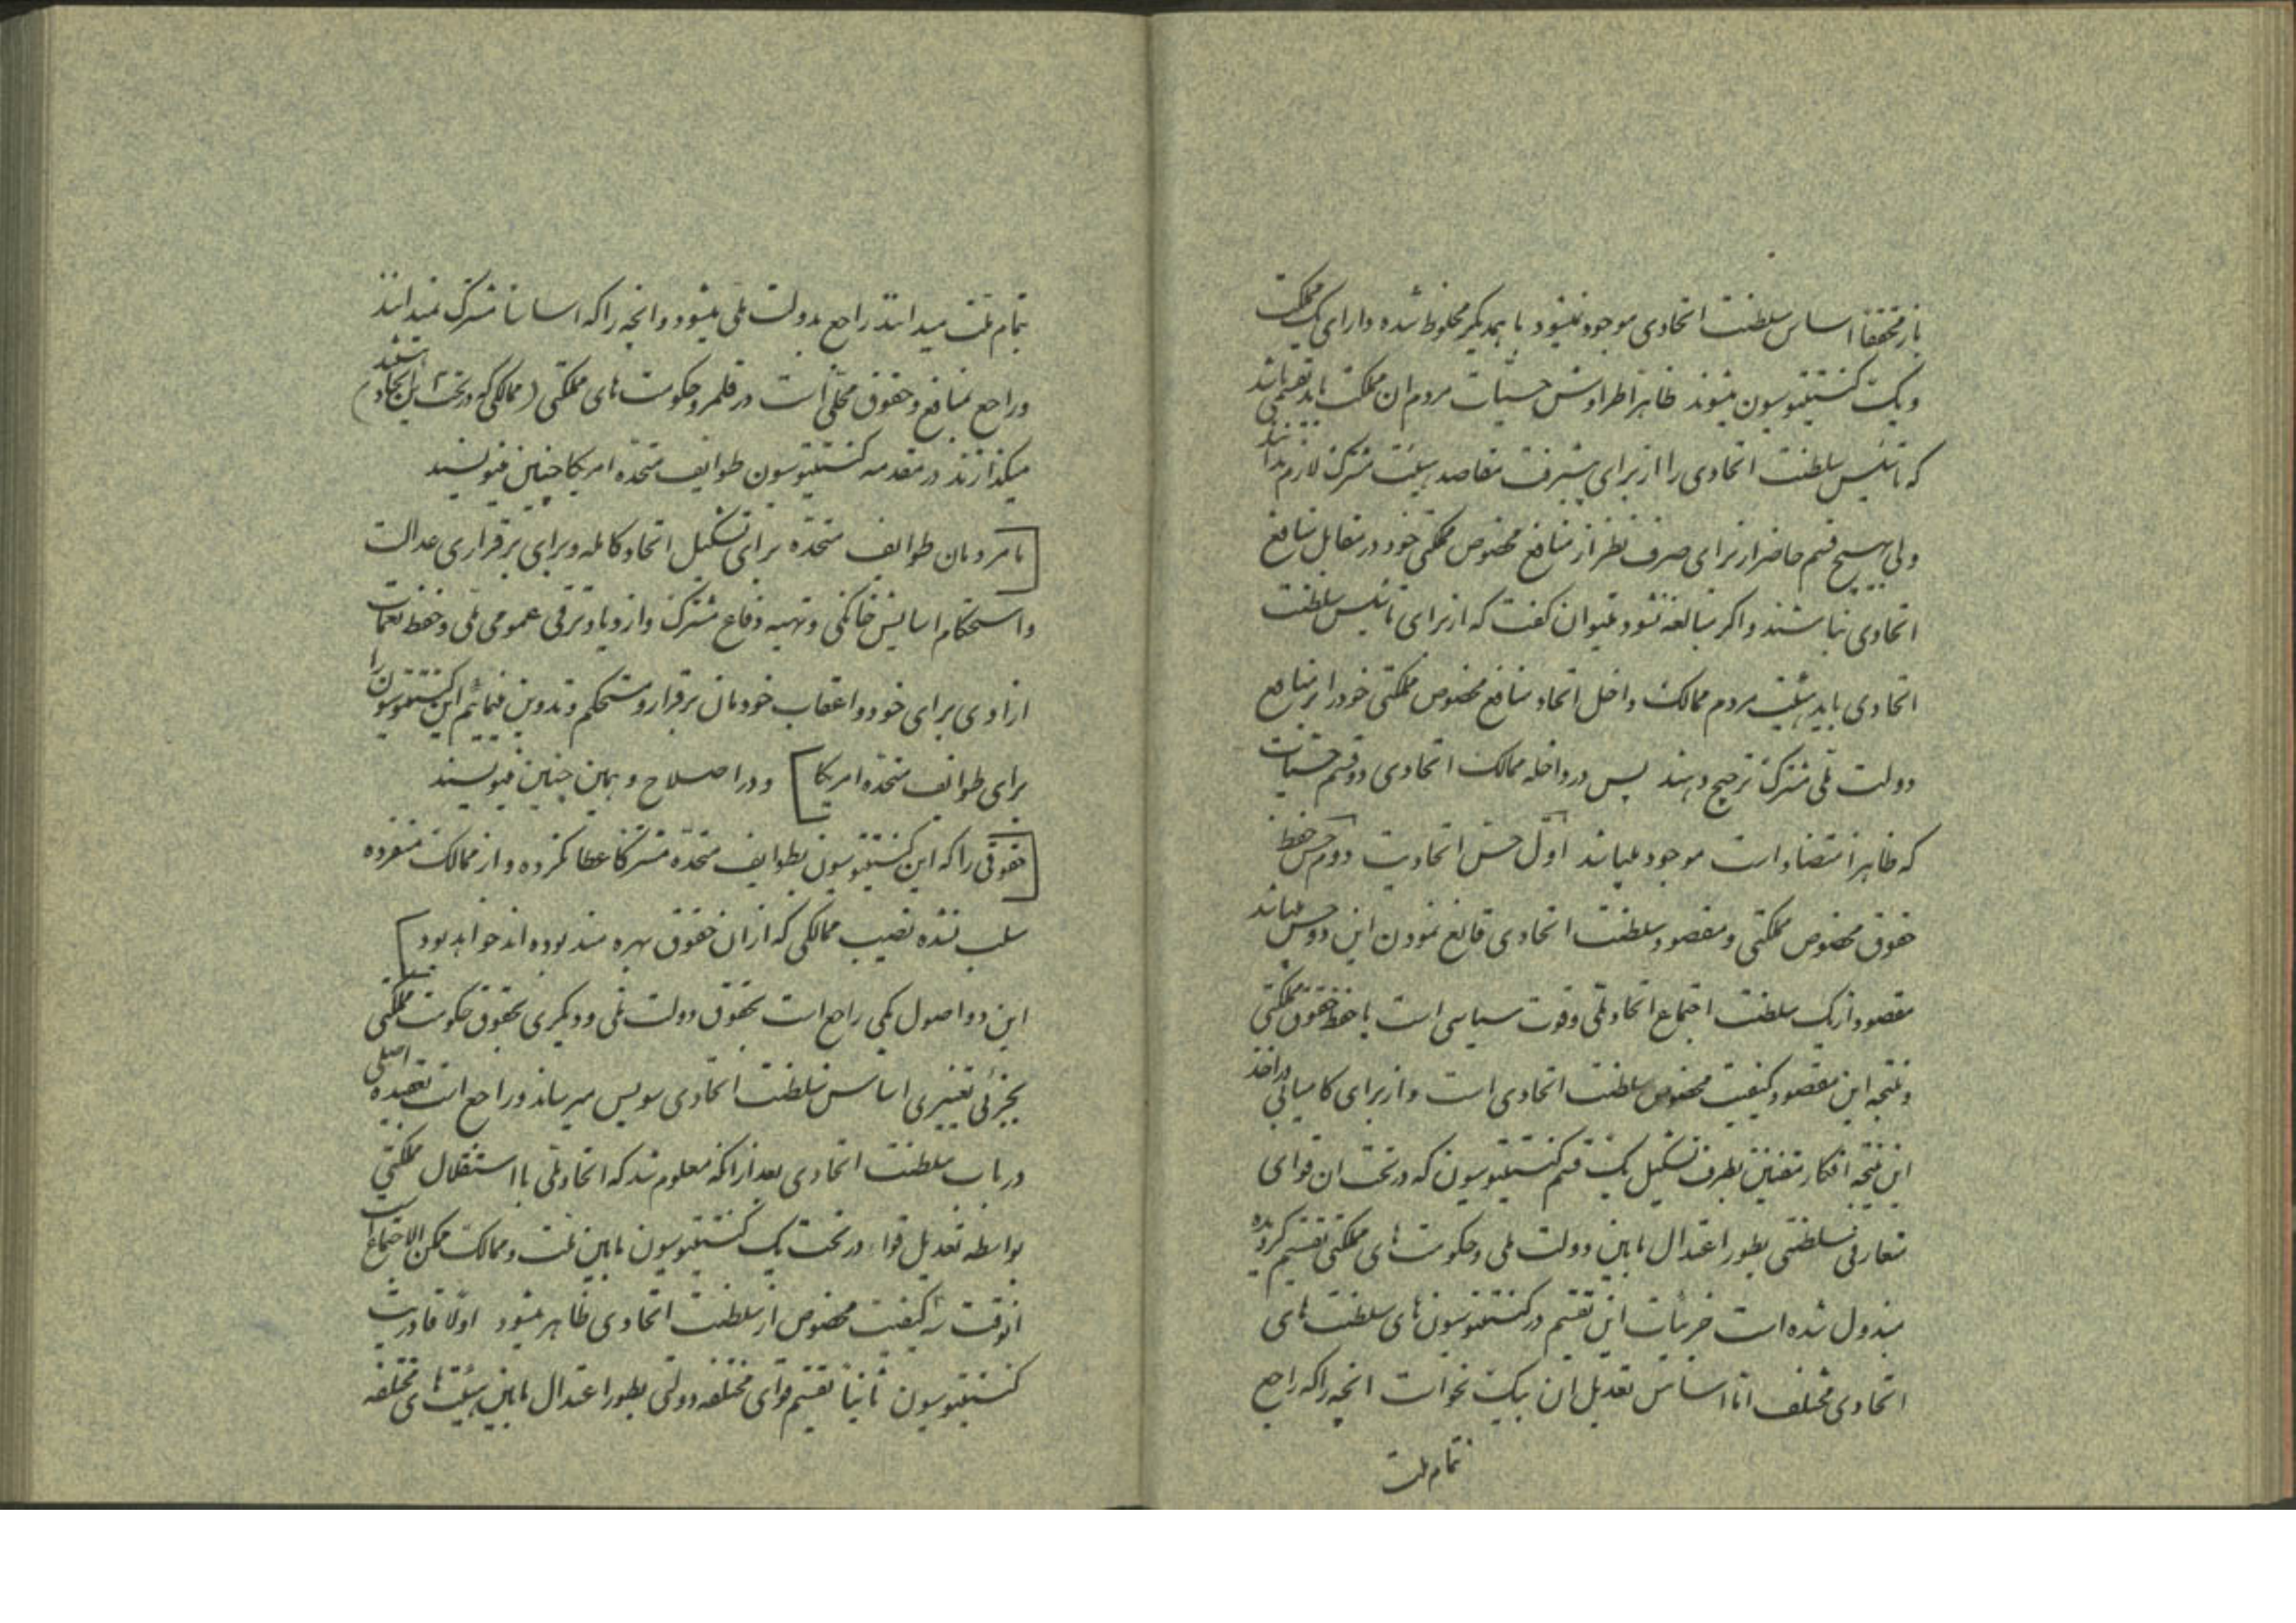 باز محققاً اساس سلطنت اتحادی موجود نمیشود با همدیگر مخلوط شده دارای یک مملکت
و یک کنستیتوسیون میشوند ظاهراً طراوش حسیات مردم ان مملکت باید بقسمی باشد
که تاسیس سلطنت اتحادی را از برای پیشرفت مقاصد هیئت مشترک لازم بدانند
ولی بهیچ قسم حاضر از برای صرف نظر از منافع مخصوص مملکتی خود در مقابل منافع
اتحادی نباشند و اگر مبالغه نشود میتوان گفت که از برای تاسیس سلطنت
اتحادی باید هیئت مردم ممالک داخل اتحاد منافع مخصوص مملکتی خود را بر منافع
دولت ملی مشترک ترجیح دهند پس در داخله ممالک اتحادی دو قسم حسیات
که ظاهراً متضاد است موجود میباشد اول حس اتحادیت دوم حس حفظ
حقوق مخصوص مملکتی و مقصود سلطنت اتحادی قانع نمودن این دو حس میباشد
مقصود از یک سلطنت اجتماع اتحاد ملی وقوت سیاسی است با حفظ حقوق مملکتی
و نتیجه این مقصود کیفیت مخصوص سلطنت اتحادی است و از برای کامیابی در اخذ
این نتیجه افکار مقننین بطرف تشکیل یک قسم کنستیتوسیون که در تحت ان قوای
متعارفی سلطنتی بطور اعتدال مابین دولت ملی و حکومت های مملکتی تقسیم گردیده
مبذول شده است جزئیات این تقسیم در کنستیتوسیون های سلطنت های
اتحادی مختلف اما اساس تعدیل ان بیک نحو است انچه را که راجع
تمام ملت
بتمام ملت میدانند راجع بدولت ملی میشود و انچه را که اساساً مشترک نمیدانند
و راجع بمنافع و حقوق محلی است در قلمرو حکومت های مملکتی (ممالکی که در تحت اتحاد هستند)
میگذارند در مقدمه کنستیتوسیون طوایف متحده امریکا چنین مینویسند
[ما مردمان طوایف متحده برای تشکیل اتحاد کامله و برای برقراری عدالت
و استحکام اسایش خانگی و تهیه دفاع مشترک و ازدیاد ترقی عمومی ملی و حفظ نعمات
ازادی برای خود و اعقاب خودمان برقرار و مستحکم و تدوین مینمائیم این کنستیتوسیون را
برای طوایف متحده امریکا] و در اصلاح دهمین چنین مینویسند
[حقوقی را که این کنستیتوسیون بطوایف متحده مشترکاً عطا نکرده و از ممالک منفرده
سلب نشده نصیب ممالکی که از ان حقوق بهره مند بوده اند خواهد بود]
این دو اصول یکی راجع است بحقوق دولت ملی و دیگری بحقوق حکومت مملکتی
بجزئی تغییری اساس سلطنت اتحادی سویس میرساند و راجع است بعقیده اصلی
در باب سلطنت اتحادی بعد از انکه معلوم شد که اتحاد ملی با استقلال مملکتی
بواسطه تعدیل قواء در تحت یک کنستیتوسیون مابین ملت و ممالک ممکن الاجتماع است
انوقت سه کیفیت مخصوص از سلطنت اتحادی ظاهر میشود اولاً قادریت
کنستیتوسیون ثانیاً تقسیم قوای مختلفه دولتی بطور اعتدال مابین هیئت های مختلفه